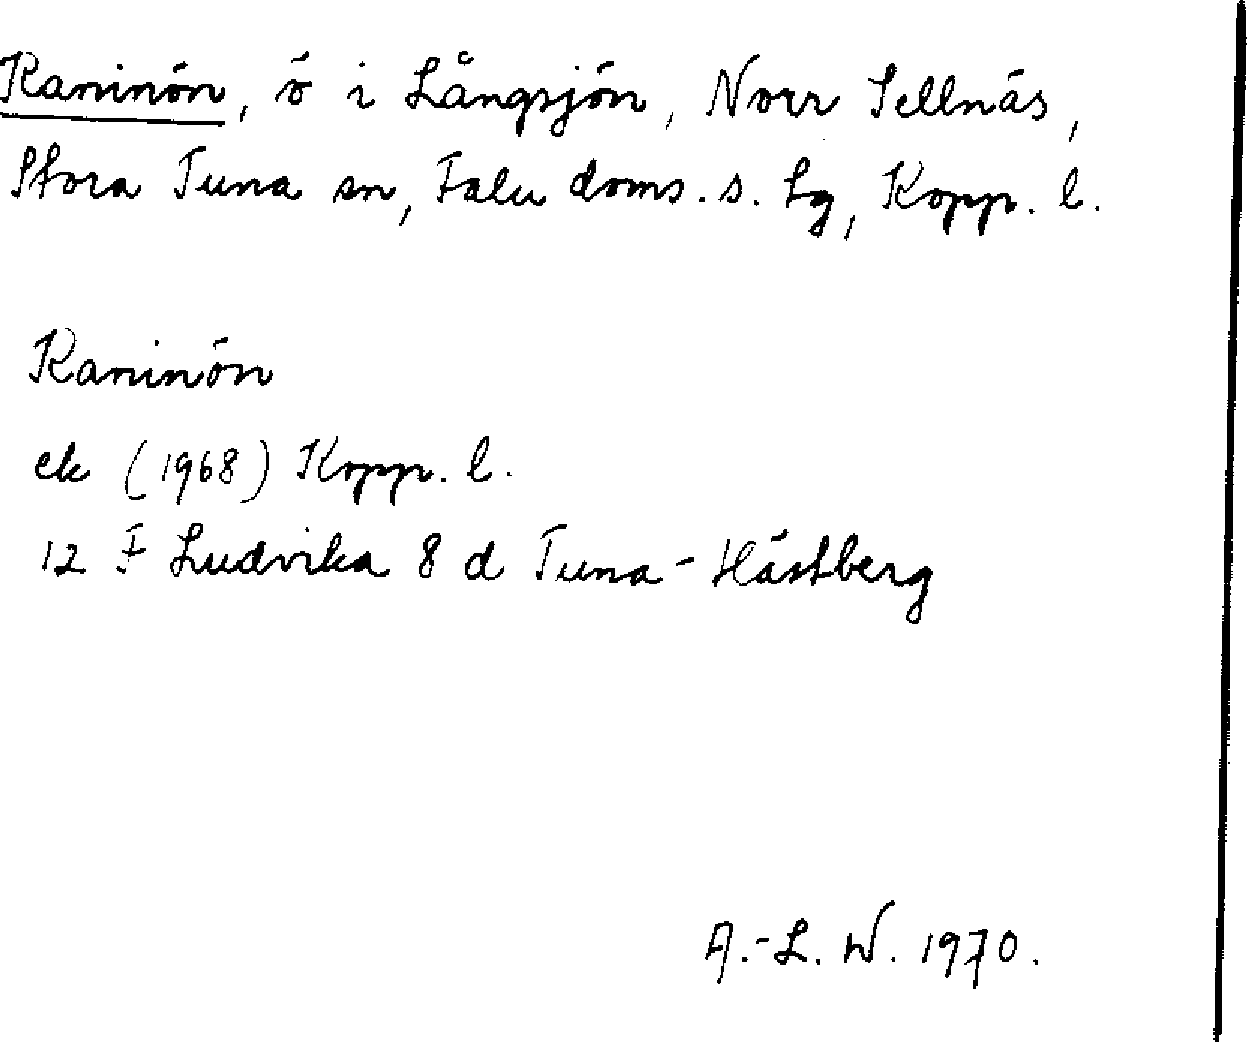 Kaninön, ö i Långsjön, Norr Sellnäs,
Stora Tuna sn, Falu doms. s. tg, Kopp. l.
Kaninön
ek (1968) Kopp. l.
12 F Ludvika 8 d Tuna-Hästberg
A.-L. W. 1970.